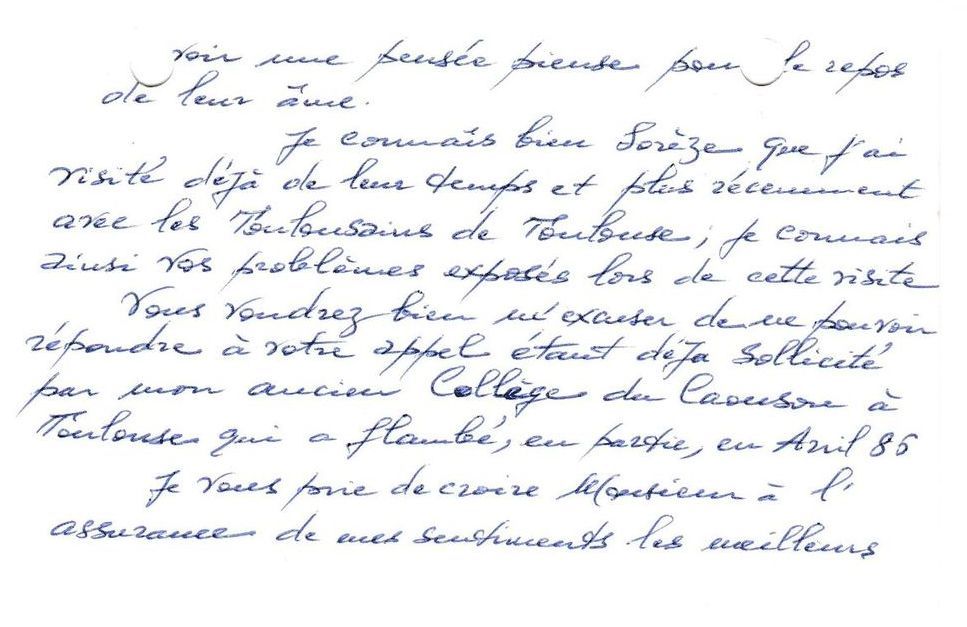 voir une pensée pieuse pour le repos
de leur âme.
Je connais bien Sorèze que j'ai
visité déjà de leur temps et plus récemment
avec les Toulousains de Toulouse ; je connais
ainsi vos problèmes exposés lors de cette visite
Vous voudrez bien m'excuser de ne pouvoir
répondre à votre appel étant déjà sollicité
par mon ancien Collège du Caousou à
Toulouse qui a flambé, en partie, en Avril 86
Je vous prie de croire Monsieur à l'
assurance de mes sentiments les meilleurs